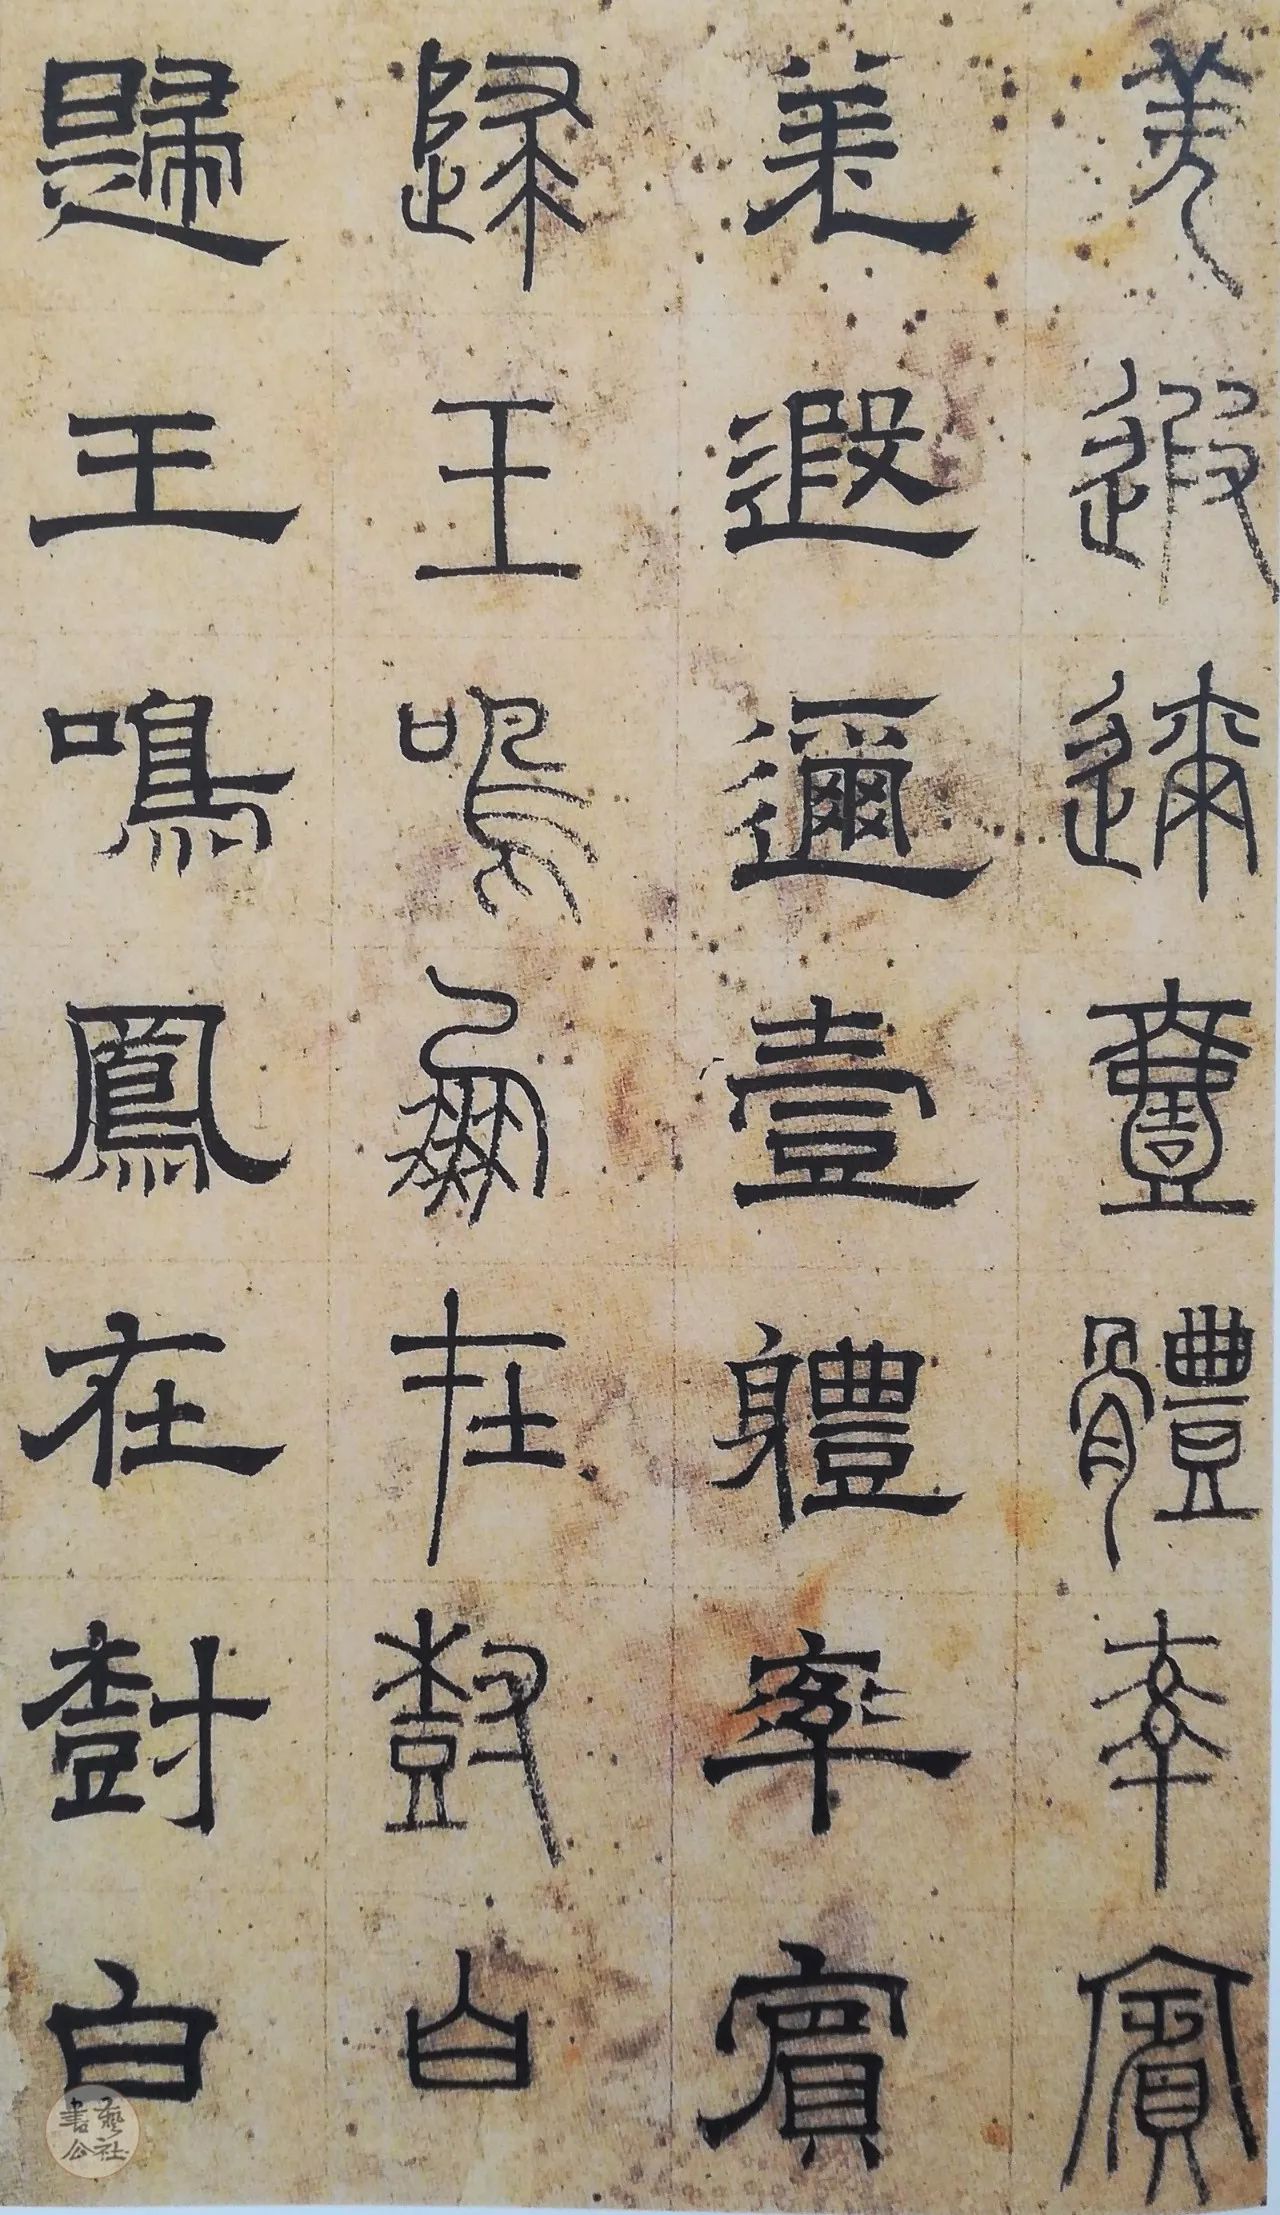 羌遐邇壹體率賓
羌遐邇壹體率賓
歸王鳴鳳在樹白
歸王鳴鳳在樹白
書藝公社